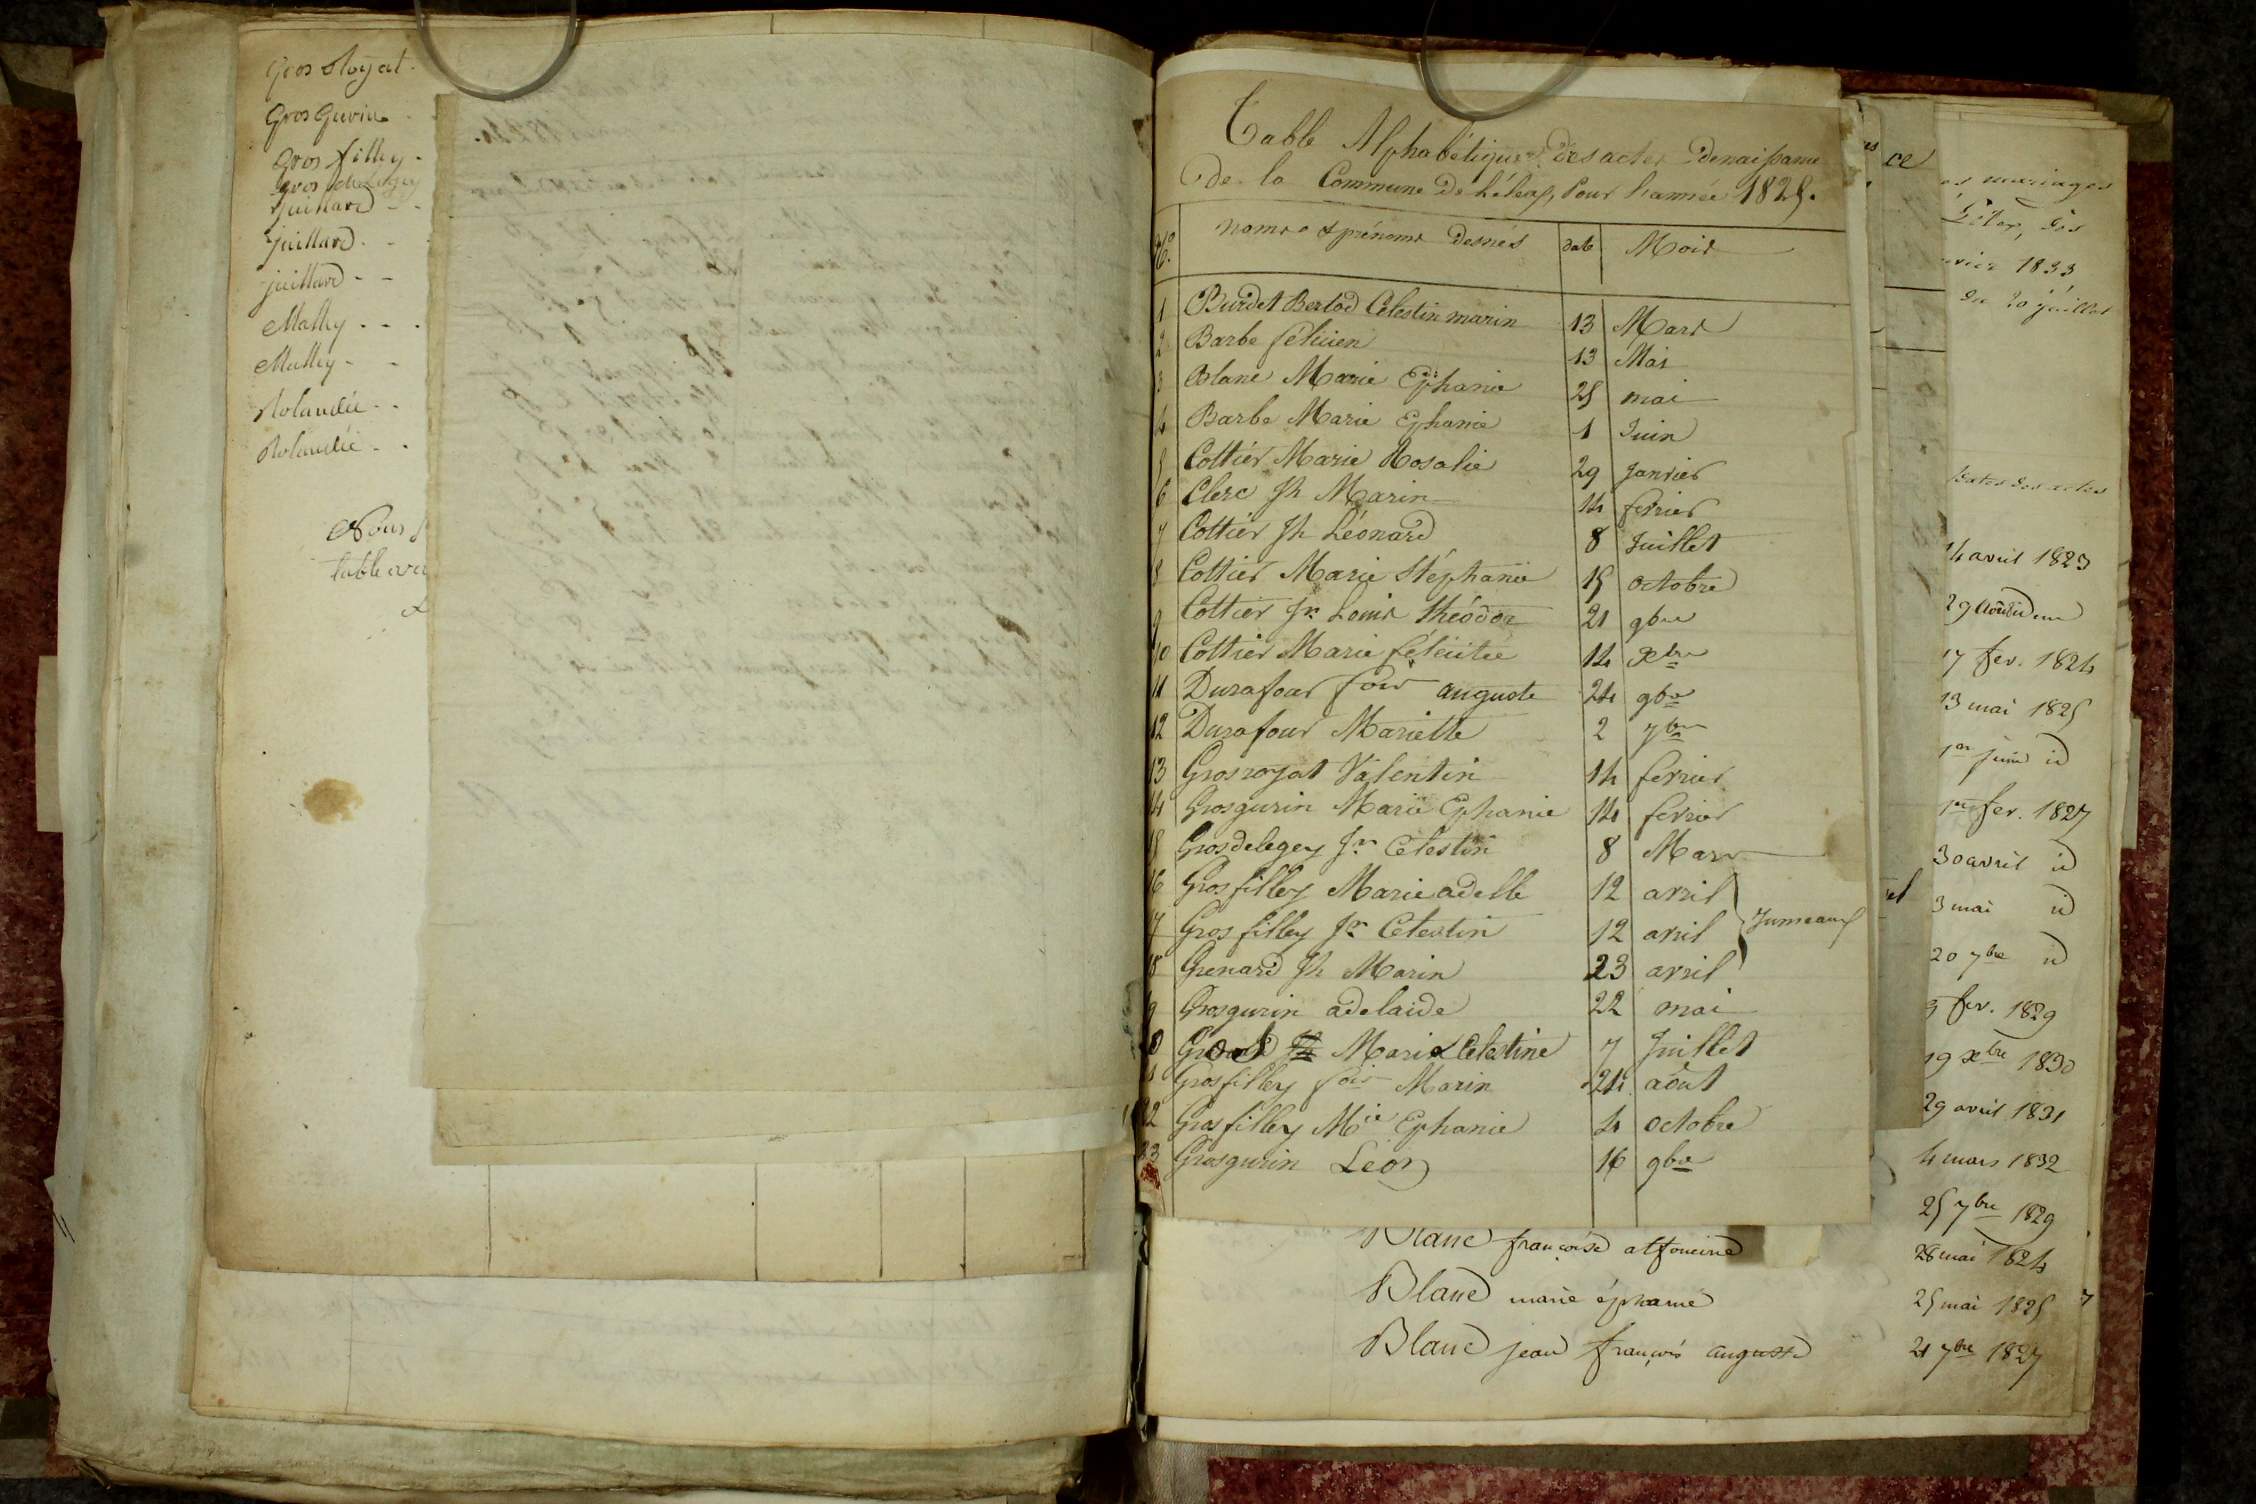 Gros Royat
Gros Gurin
Gros filley
Gros
juillard
juillard
juillard
Mathy
Mathy
Rolandée
Rolandée
Nous
table
Table Alphabétique des actes de naissance
de la Commune de Lélex, Pour l'année 1825.
N.º noms & prénoms des nés date Mois
1 Burdet Bertod Célestin marin 13 Mars
2 Barbe félicien 13 Mai
3 Blanc Marie Ephanie 25 mai
4 Barbe Marie Ephanie 1 Juin
5 Cottier Marie Rosalie 29 Janvier
6 Clerc Jh Marin 14 fevrier
7 Cottier Jh Léonard 8 Juillet
8 Cottier Marie Stéphanie 15 octobre
9 Cottier Jn Louis théodor 21 9bre
10 Cottier Marie félicitée 14 Xbre
11 Durafour fois auguste 24 9bre
12 Durafour Mariette 2 7bre
13 Grosroyat Valentin 14 fevrier
14 Grosgurin Marie Ephanie 14 fevrier
15 Grosdelegey Jn Célestin 8 Mars
16 Grosfilley Marie adelle 12 avril
17 Grosfilley Jn Célestin 12 avril Jumeaux
18 Grenard Jh Marin 23 avril
19 Grosgurin adelaide 22 mai
20 Marie Célestine 7 Juillet
21 Grosfilley fois Marin 24 août
22 Grosfilley Mie Ephanie 4 octobre
23 Grosgurin Léon 16 9bre
ce
mariages
Lélex, des
1833
du 20 juillet
dates des actes
14 avril 1823
29
17 fev. 1824
13 mai 1825
1er juin id
1er fev. 1827
30 avril id
3 mai id
20 7bre id
3 fev. 1829
19 Xbre 1830
29 avril 1831
4 mars 1832
25 7bre 1829
Blanc françoise 28 mai 1824
Blanc marie éphanie 25 mai 1825
Blanc jean françois auguste 21 7bre 1827